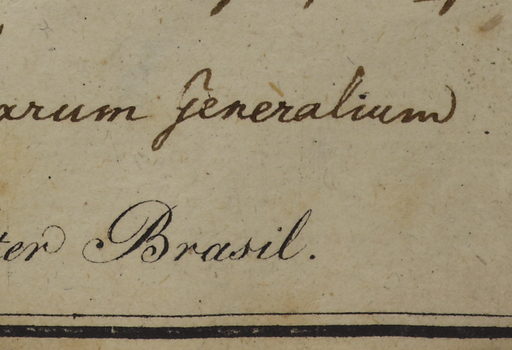 arum generalium
ter Brasil.